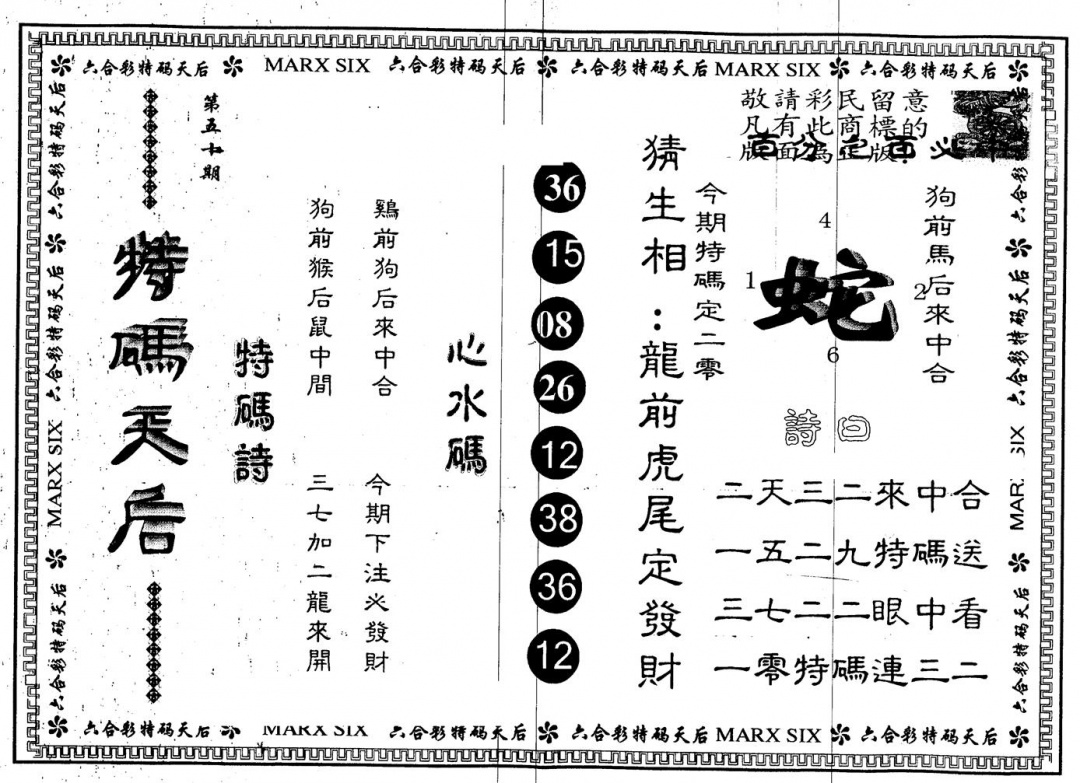 六合彩特码天后 MARX SIX 六合彩特码天后 六合彩特码天后 MARX SIX 六合彩特码天后
敬請彩民留意
凡有此商標的
版面為正版
狗前馬后來中合
4
1
蛇
2
6
今期特碼定二零
猜生相:龍前虎尾定發財
詩曰
二天三二來中合
一五二九特碼送
三七二二眼中看
一零特碼連三二
36
15
08
26
12
38
36
12
心水碼
鷄前狗后來中合
今期下注必發財
狗前猴后鼠中間
三七加二龍來開
特碼詩
第五十期
特碼天后
六合彩特码天后 MARX SIX 六合彩特码天后 六合彩特码天后
六合彩特码天后 MARX SIX 六合彩特码天后 六合彩特码天后 MARX SIX 六合彩特码天后